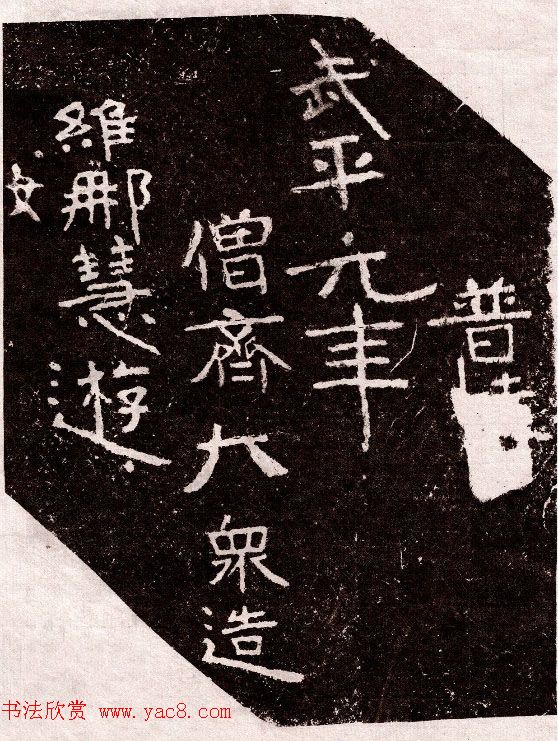 普
武平元年
僧齊大眾造
維那慧遊
书法欣赏 www.yac8.com